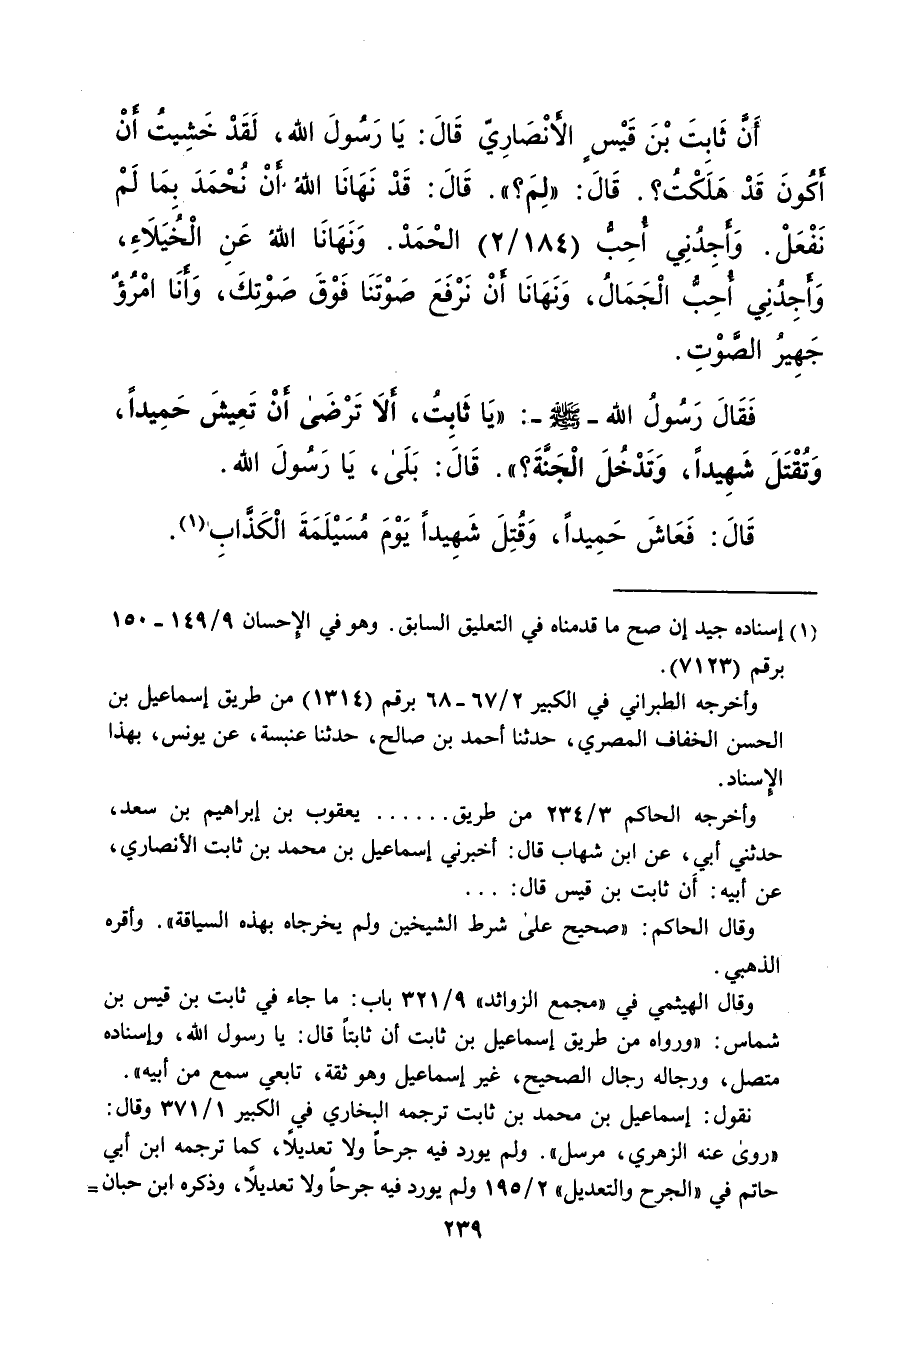 أَنَّ ثَابِتَ بْنَ قَيْسٍ الأَنْصَارِيّ قَالَ: يَا رَسُولَ الله، لَقَدْ خَشِيتُ أَنْ
أَكُونَ قَدْ هَلَكْتُ؟. قَالَ: «لِمَ؟». قَالَ: قَدْ نَهَانَا اللهُ أَنْ نُحْمَدَ بِمَا لَمْ
نَفْعَلْ. وَأَجِدُنِي أُحِبُّ (٢/١٨٤) الحَمْدَ. وَنَهَانَا اللهُ عَنِ الْخُيَلَاءِ،
وَأَجِدُنِي أُحِبُّ الْجَمَالَ، وَنَهَانَا أَنْ نَرْفَعَ صَوْتَنَا فَوْقَ صَوْتِكَ، وَأَنَا امْرُؤٌ
جَهِيرُ الصَّوْتِ.
فَقَالَ رَسُولُ الله ـ ﷺ ـ: «يَا ثَابِتُ، أَلَا تَرْضَىٰ أَنْ تَعِيشَ حَمِيداً،
وَتُقْتَلَ شَهِيداً، وَتَدْخُلَ الْجَنَّةَ؟». قَالَ: بَلَىٰ، يَا رَسُولَ الله.
قَالَ: فَعَاشَ حَمِيداً، وَقُتِلَ شَهِيداً يَوْمَ مُسَيْلَمَةَ الْكَذَّابِ(١).
(١) إسناده جيد إن صح ما قدمناه في التعليق السابق. وهو في الإحسان ١٤٩/٩ ـ ١٥٠
برقم (٧١٢٣).
وأخرجه الطبراني في الكبير ٦٧/٢ ـ ٦٨ برقم (١٣١٤) من طريق إسماعيل بن
الحسن الخفاف المصري، حدثنا أحمد بن صالح، حدثنا عنبسة، عن يونس، بهذا
الإسناد.
وأخرجه الحاكم ٢٣٤/٣ من طريق...... يعقوب بن إبراهيم بن سعد،
حدثني أبي، عن ابن شهاب قال: أخبرني إسماعيل بن محمد بن ثابت الأنصاري،
عن أبيه: أن ثابت بن قيس قال: ...
وقال الحاكم: «صحيح علىٰ شرط الشيخين ولم يخرجاه بهذه السياقة». وأقره
الذهبي.
وقال الهيثمي في «مجمع الزوائد» ٣٢١/٩ باب: ما جاء في ثابت بن قيس بن
شماس: «ورواه من طريق إسماعيل بن ثابت أن ثابتاً قال: يا رسول الله، وإسناده
متصل، ورجاله رجال الصحيح، غير إسماعيل وهو ثقة، تابعي سمع من أبيه».
نقول: إسماعيل بن محمد بن ثابت ترجمه البخاري في الكبير ٣٧١/١ وقال:
«روىٰ عنه الزهري، مرسل». ولم يورد فيه جرحاً ولا تعديلًا، كما ترجمه ابن أبي
حاتم في «الجرح والتعديل» ١٩٥/٢ ولم يورد فيه جرحاً ولا تعديلًا، وذكره ابن حبان =
٢٣٩